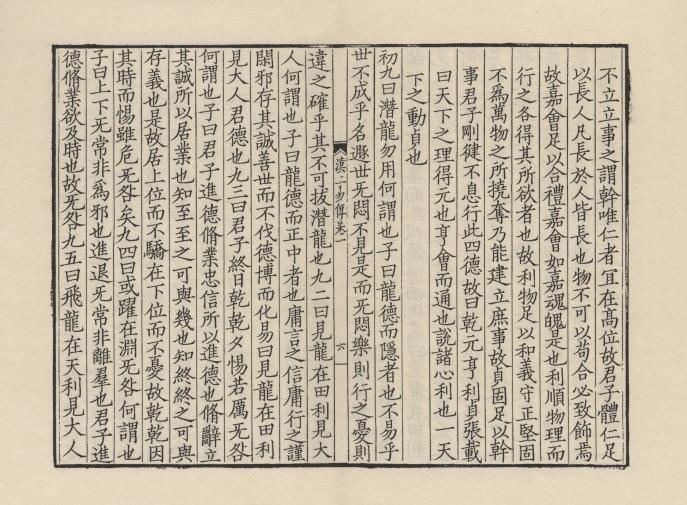 不立立事之謂幹唯仁者宜在髙位故君子體仁足
以長人凡長於人皆長也物不可以苟合必致飾焉
故嘉會足以合禮嘉會如嘉魂魄是也利順物理而
行之各得其所欲者也故利物足以和義守正堅固
不爲萬物之所撓奪乃能建立庶事故貞固足以幹
事君子剛健不息行此四德故曰乾元亨利貞張載
曰天下之理得元也亨會而通也說諸心利也一天
下之動貞也
初九曰潛龍勿用何謂也子曰龍德而隱者也不易乎
世不成乎名遯世旡悶不見是而旡悶樂則行之憂則
漢上易傳卷一
六
違之確乎其不可拔潛龍也九二曰見龍在田利見大
人何謂也子曰龍德而正中者也庸言之信庸行之謹
閑邪存其誠善世而不伐德博而化易曰見龍在田利
見大人君德也九三曰君子終日乾乾夕惕若厲旡咎
何謂也子曰君子進德脩業忠信所以進德也脩辭立
其誠所以居業也知至至之可與幾也知終終之可與
存義也是故居上位而不驕在下位而不憂故乾乾因
其時而惕雖危旡咎矣九四曰或躍在淵旡咎何謂也
子曰上下旡常非爲邪也進退旡常非離羣也君子進
德脩業欲及時也故旡咎九五曰飛龍在天利見大人